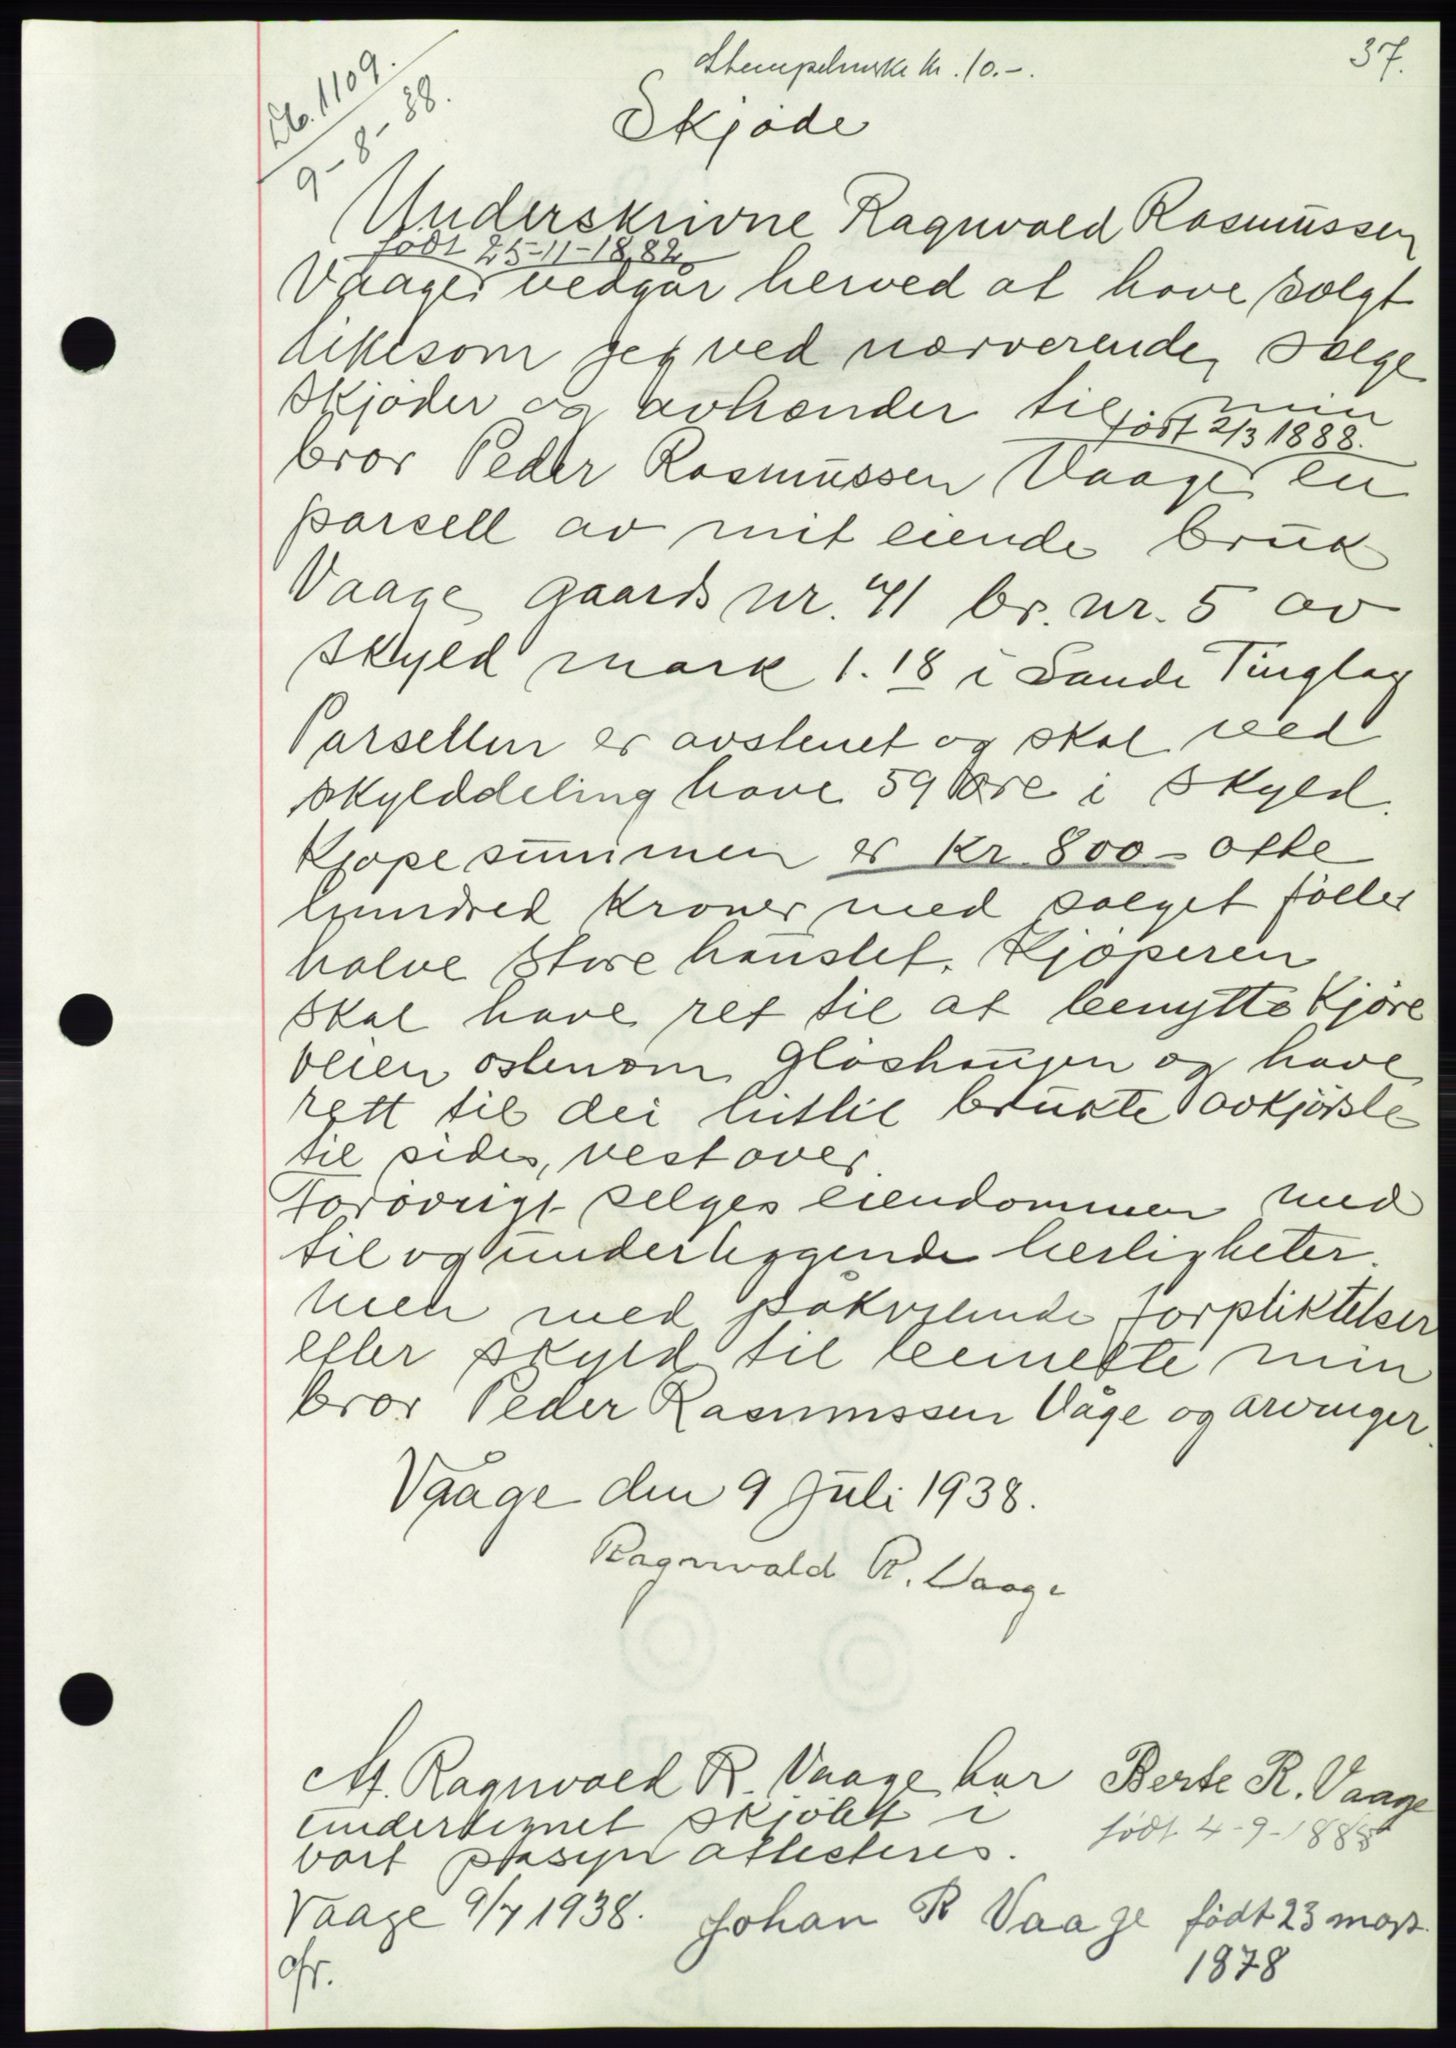 37.
Stempelmerke kr. 10.-.
Db. 1109.
9-8-38.
Skjøde
Underskrivne Ragnvald Rasmussen
født 25-11-1882
Vaage vedgår herved at have solgt
likesom jeg ved nærverende sælge
skjøder og avhænder til min
født 2/3 1888.
bror Peder Rasmussen Vaage en
parsell av mit eiende bruk
Vaage gaards nr. 41 br. nr. 5 av
skyld mark 1.18 i Sande Tinglag
Parsellen er avstenet og skal ved
skylddeling have 59 øre i skyld.
Kjøpesummen er kr. 800- otte
hundred kroner med salget føller
halve store haustet. Kjøperen
skal have ret til at benytte kjøre
veien østenom Gløshaugen og have
rett til dei hittil brukte avkjørsle
til sides, vestover.
Forøvrigt selges eiendommen med
til og underliggende herligheter.
men med påkvilende forpliktelser
efter skyld til bemelte min
bror Peder Rasmussen Våge og arvinger.
Vååge den 9 Juli 1938.
Ragnvald R. Vaage
At Ragnvald R. Vaage har
undertegnet skjøtet i
vort påsyn attesteres.
Berte R. Vaage
født 4-9-1888
Vaage 9/7 1938.
Johan R Vaage født 23 mars
1878
gfr.